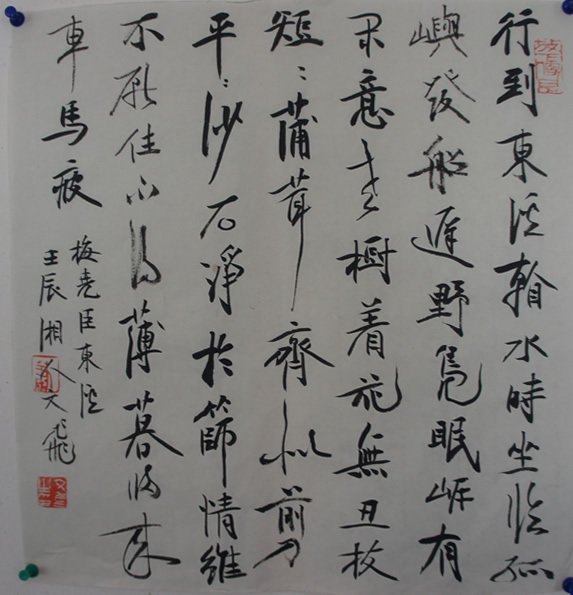 行到東溪翰水時坐臨孤
嶼發船遲野鳧眠岸有
閑意老樹着花無丑枝
短〻蒲茸齊似剪
平〻沙石淨於篩情維
不厭住不得薄暮歸來
車馬疲
梅堯臣東溪
壬辰湘人文飛